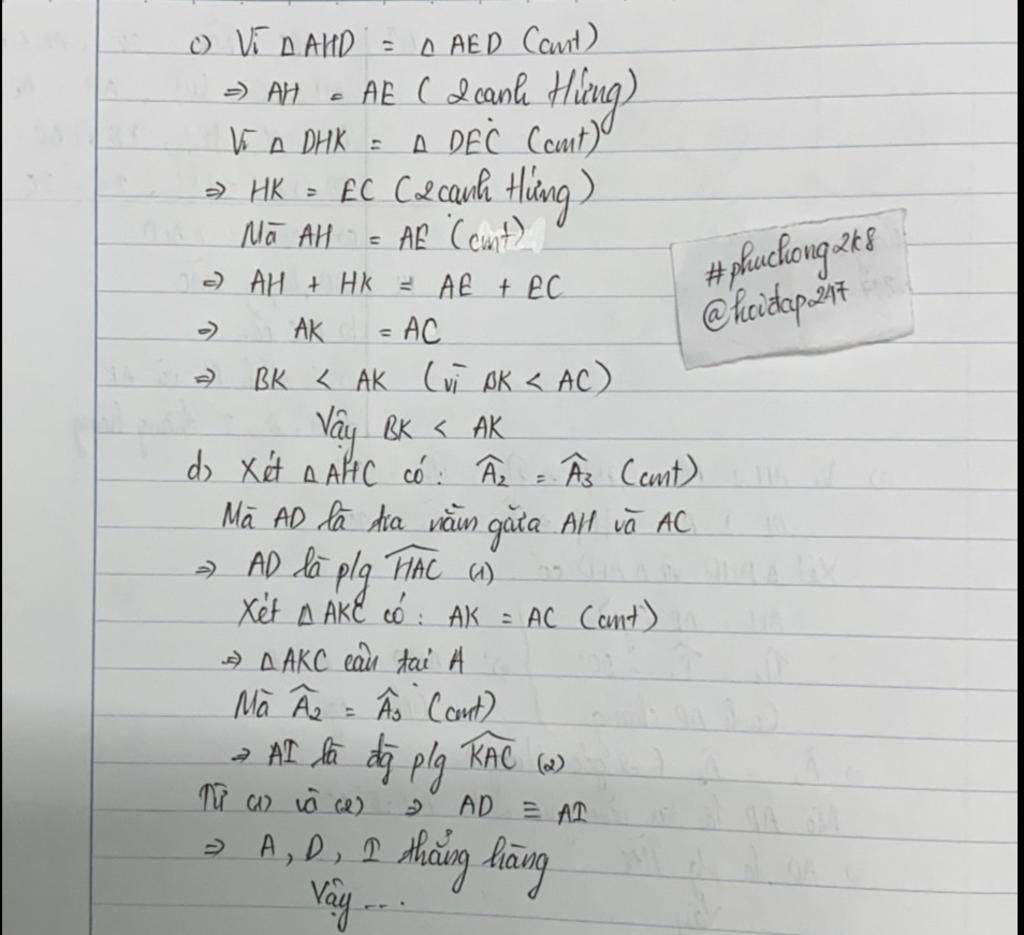 c) Vì △AHD = △AED (cmt)
⇒ AH = AE (2 cạnh t/ứng)
Vì △DHK = △DEC (cmt)
⇒ HK = EC (2 cạnh t/ứng)
Mà AH = AE (cmt)
⇒ AH + HK = AE + EC
⇒ AK = AC
⇒ BK < AK (vì BK < AC)
Vậy BK < AK
#phuchong2k8
@hoidap247
d) Xét △AHC có: Â₂ = Â₃ (cmt)
Mà AD là tia nằm giữa AH và AC
⇒ AD là p/g HAC (1)
Xét △AKC có: AK = AC (cmt)
⇒ △AKC cân tại A
Mà Â₂ = Â₃ (cmt)
⇒ AI là p/g KAC (2)
Từ (1) và (2) ⇒ AD ≡ AI
⇒ A, D, I thẳng hàng
Vậy ...